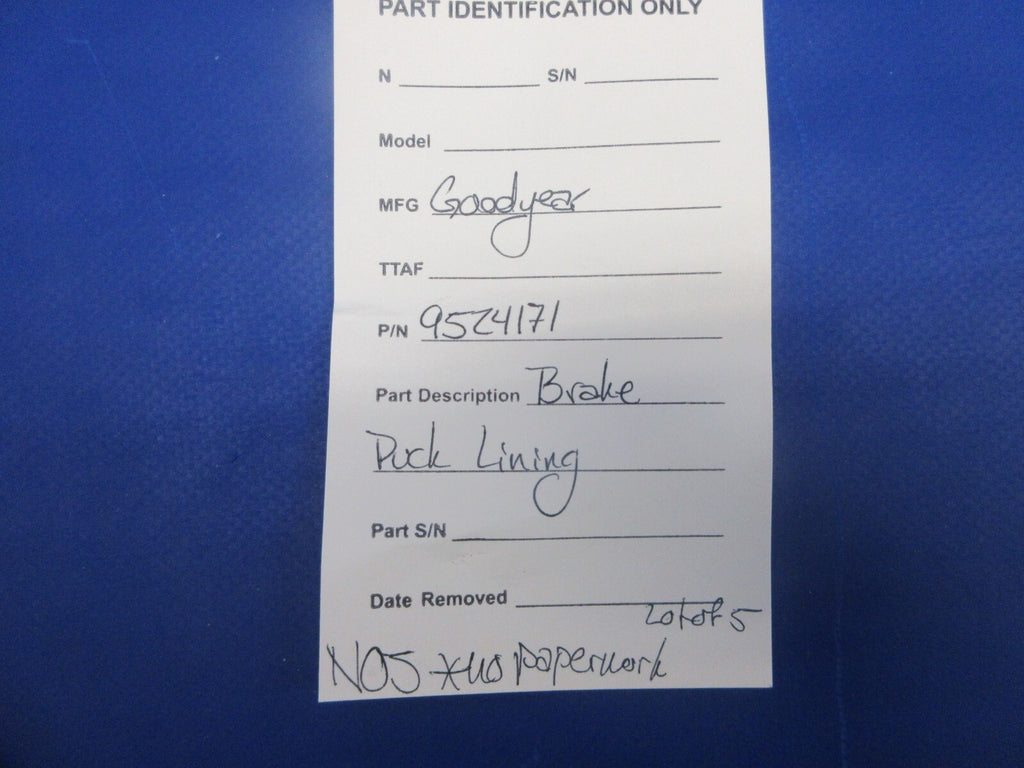 PART IDENTIFICATION ONLY
N S/N
Model
MFG Goodyear
TTAF
P/N 9524171
Part Description Brake
Puck Lining
Part S/N
Date Removed
Lot of 5
NOS *no paperwork